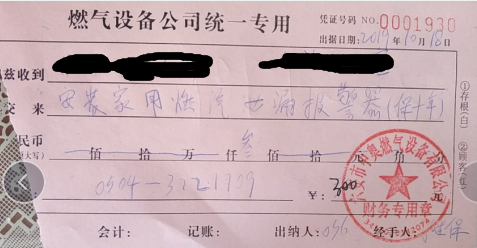 燃气设备公司统一专用
凭证号码 NO.0001930
出据日期:2019年10月18日
兹收到
交 来 安装家用燃汽泄漏报警器(保1年)
民币
(大写) 佰 拾 万 仟 叁佰 拾 元 角 分
¥:300
燃气设备有限公司
财务专用章
①存根(白) ②顾客(红)
会计: 记账: 出纳人: 经手人: